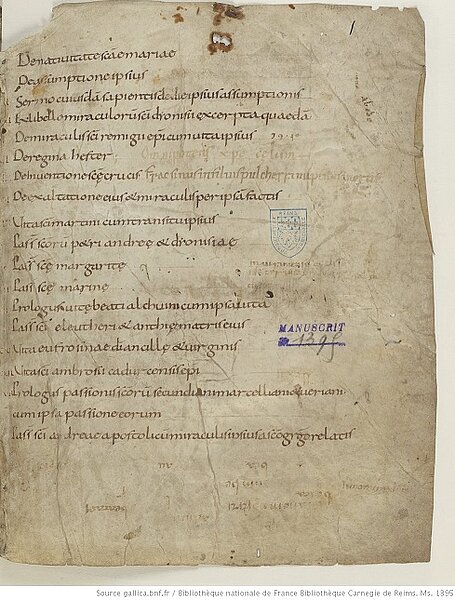 1
De nativitate scae mariae
De assumptione ipsius
Sermo cuiusda sapientis de die ipsius assumptionis
Ex libello miraculoru sci dionisii excerpta quaeda
De miraculis sci remigii epi cum vita ipsius
De regina hester
De inventione sce crucis
De exaltatione eius & miraculis per ipsa factis
Vita sci martini cum transitu ipsius
Pass scoru petri andree & dionisiae
Pass sce margarite
Pass sce marine
Prologus vite beati alchuini cum ipsa vita
Pass sci eleutherii & anthie matris eius
Vita eufrosinae di ancille & virginis
Vita sci ambrosii cadurcensis epi
Prologus passionis scoru secundiani marcelliani & veriani
cum ipsa passione eorum
Pass sci andreae apostoli cum miraculis ipsius a sco grg relatis
REIMS
MANUSCRIT
N° 1395
Source gallica.bnf.fr / Bibliothèque nationale de France Bibliothèque Carnegie de Reims. Ms. 1395